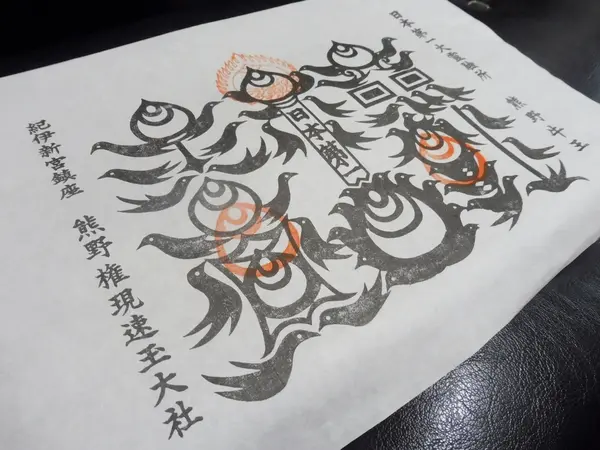 日本第一大霊験所
熊野牛王
日本第一
紀伊新宮鎮座
熊野権現速玉大社